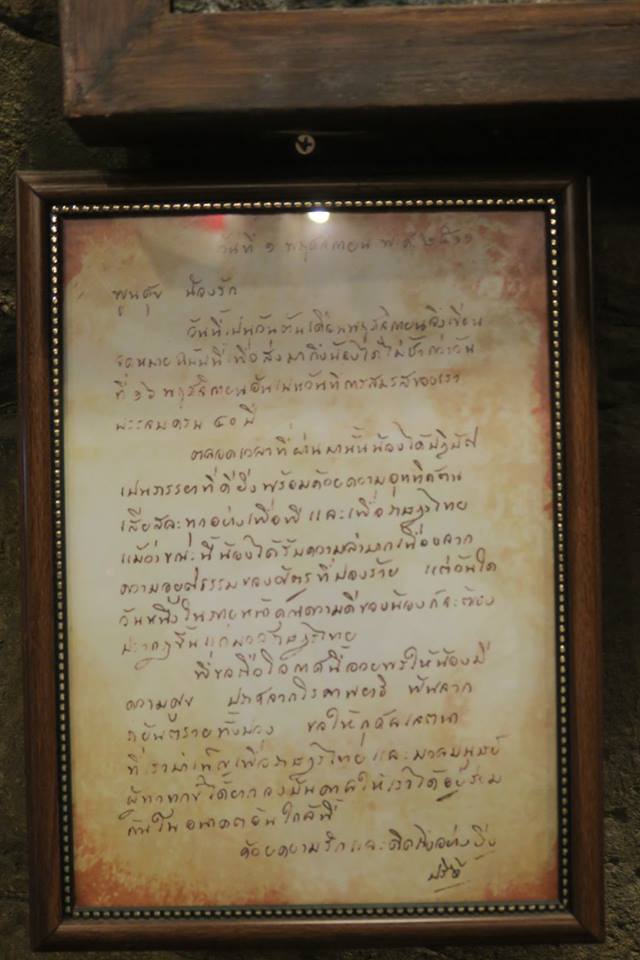 วันที่ ๑ พฤศจิกายน พ.ศ. ๒๕๑๑
พูนศุข น้องรัก
วันนี้เป็นวันต้นเดือนพฤศจิกายนจึงเขียน
จดหมายฉบับนี้เพื่อส่งมาถึงน้องได้ไม่ช้ากว่าวัน
ที่ ๑๖ พฤศจิกายนอันเป็นวันที่การสมรสของเรา
จะครบ ๔๐ ปี
ตลอดเวลาที่ผ่านมานั้นน้องได้ปฏิบัติ
เป็นภรรยาที่ดียิ่งพร้อมด้วยความอุทิศตน
เสียสละทุกอย่างเพื่อพี่และเพื่อราษฎรไทย
แม้ว่าขณะนี้น้องได้รับความลำบากเนื่องจาก
ความอยุติธรรมของศัตรูที่ปองร้าย แต่วันใด
วันหนึ่งในภายหน้าคุณความดีของน้องก็จะต้อง
ปรากฏขึ้นแก่มวลราษฎรไทย
พี่ขอถือโอกาสนี้อวยพรให้น้องมี
ความศุข ปราศจากโรคาพยาธิ พ้นจาก
ภยันตรายทั้งปวง ขอให้กุศลเจตนา
ที่เราบำเพ็ญเพื่อราษฎรไทยและมวลมนุษย์
ผู้ทุกข์ได้ยาก จงบันดาลให้เราได้อยู่ร่วม
กันในอนาคตอันใกล้นี้
ด้วยความรักและคิดถึงอย่างยิ่ง
ปรีดี